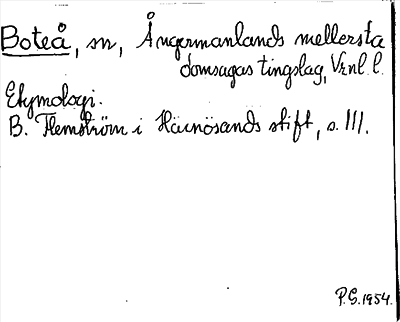 Boteå, sn, Ångermanlands mellersta
domsagas tingslag, Vrnl. l.
Etymologi.
B. Flemström i Härnösands stift, s. 111.
P.G. 1954.